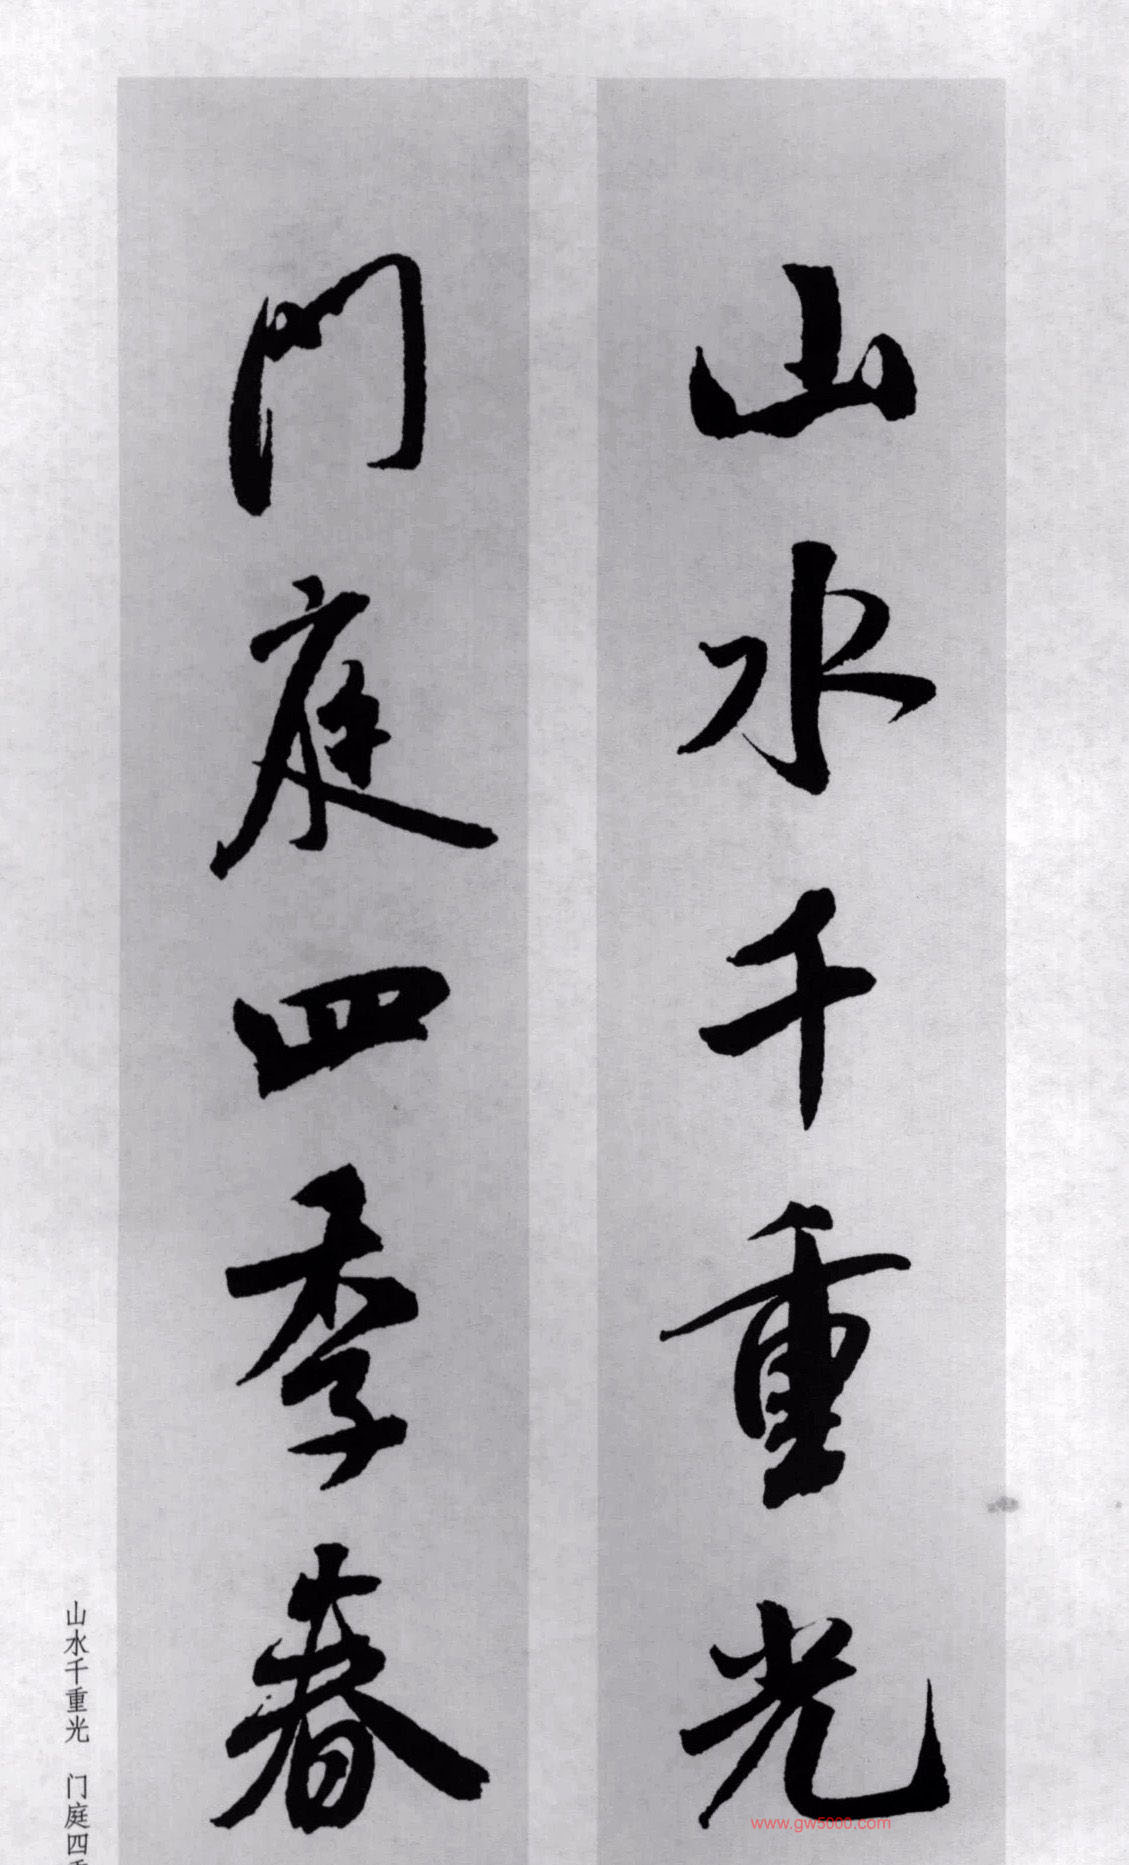 山水千重光
门庭四季春
山水千重光 门庭四
www.gw5000.com